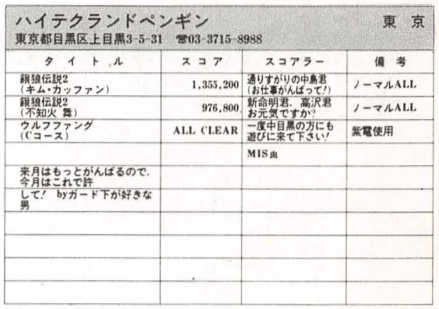 ハイテクランドペンギン 東京
東京都目黒区上目黒3-5-31 ☎03-3715-8988
タイトル スコア スコアラー 備考
餓狼伝説2 1,355,200 通りすがりの中島君 ノーマルALL
(キム・カッファン) (お仕事がんばって!)
餓狼伝説2 976,800 新命明君、高沢君 ノーマルALL
(不知火 舞) お元気ですか?
ウルフファング ALL CLEAR 一度中目黒の方にも 紫電使用
(Cコース) 遊びに来て下さい!
MIS由
来月はもっとがんばるので、
今月はこれで許
して! byガード下が好きな
男